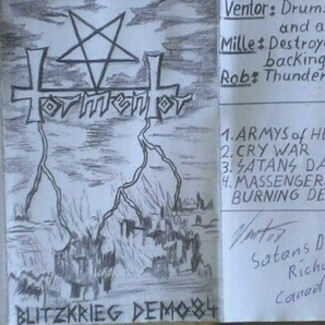 Tormentor
BLITZKRIEG DEMO'84
Ventor: Drums
and a
Mille: Destroy
backing
Rob: Thunder
1. ARMYS of HE
2. CRY WAR
3. SATANS DA
4. MASSENGER
BURNING DE
Ventor
Satans D
Riche
Canad